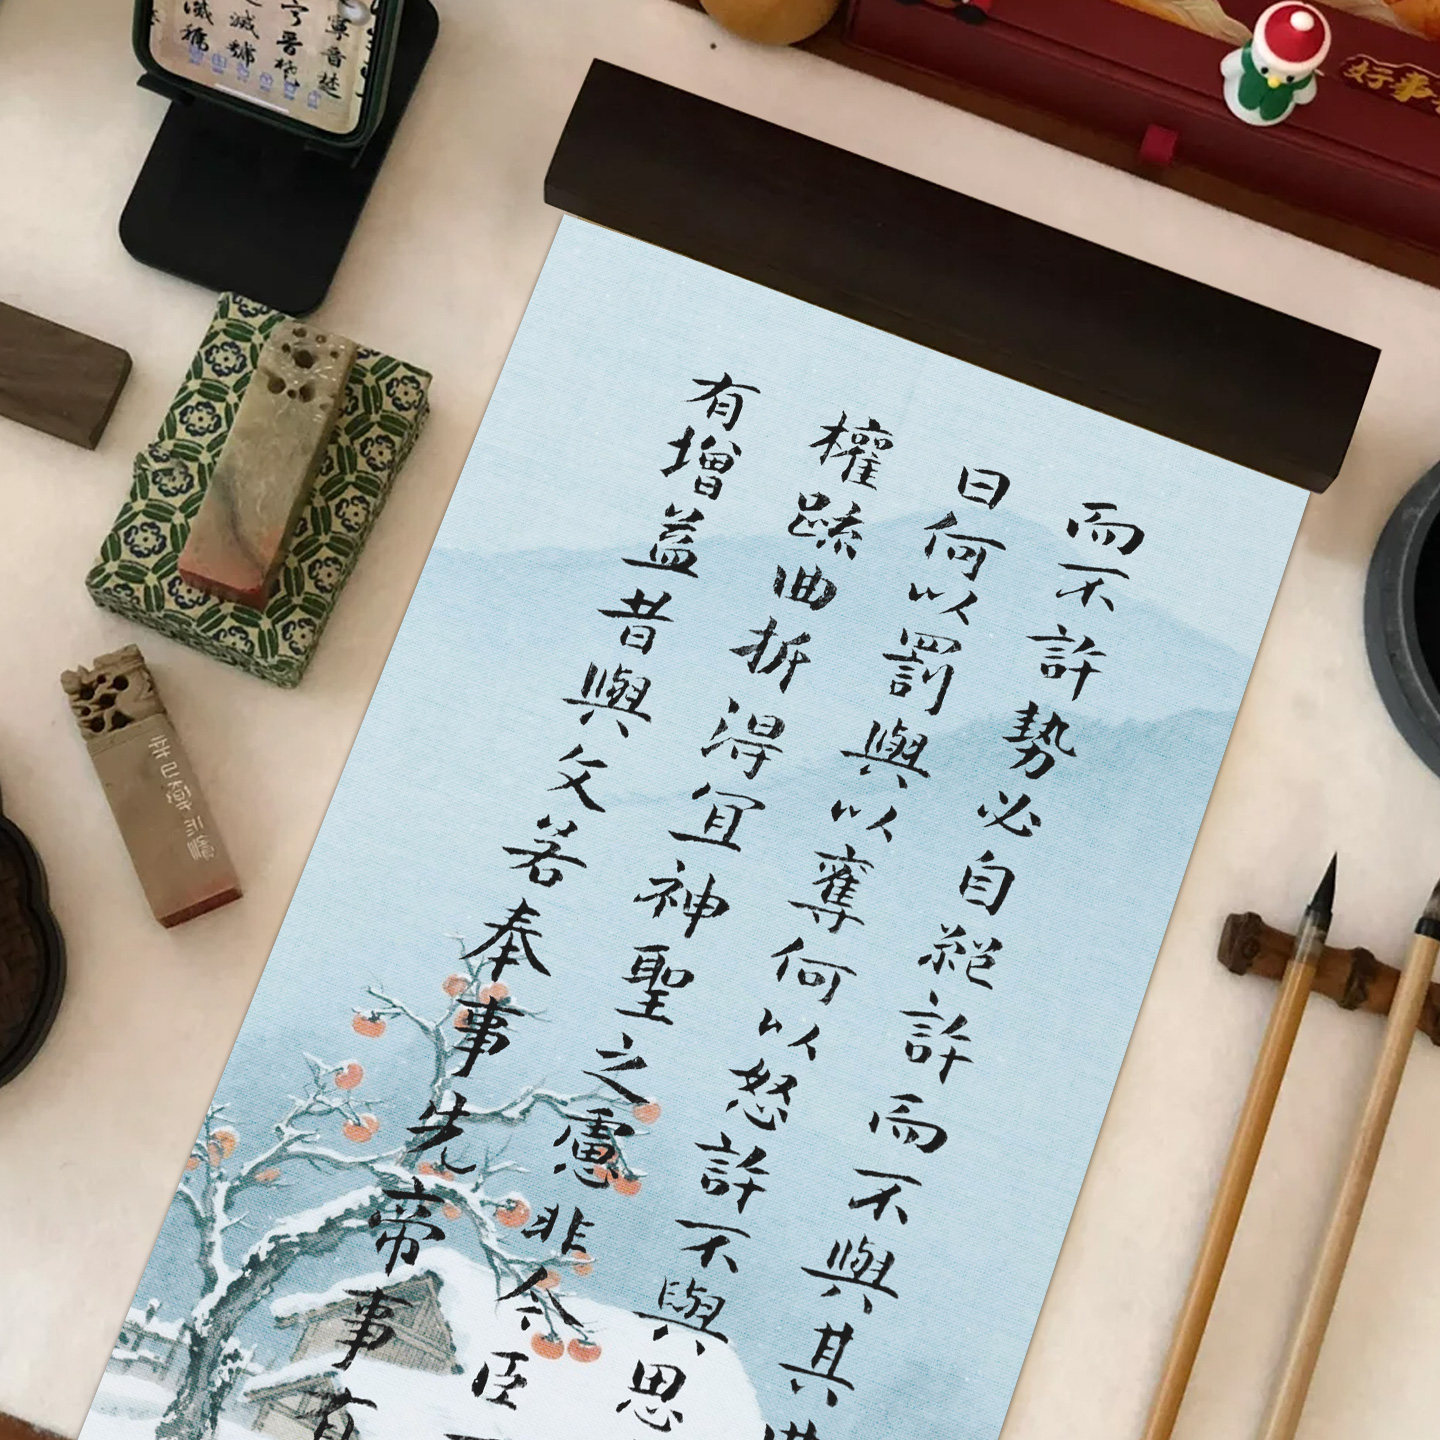 而不許勢必自絕許而不與其
曰何以罰與以奪何以怒許不與思
權疏曲折得宜神聖之慮非今臣
有增益昔與文若奉事先帝事有
好事